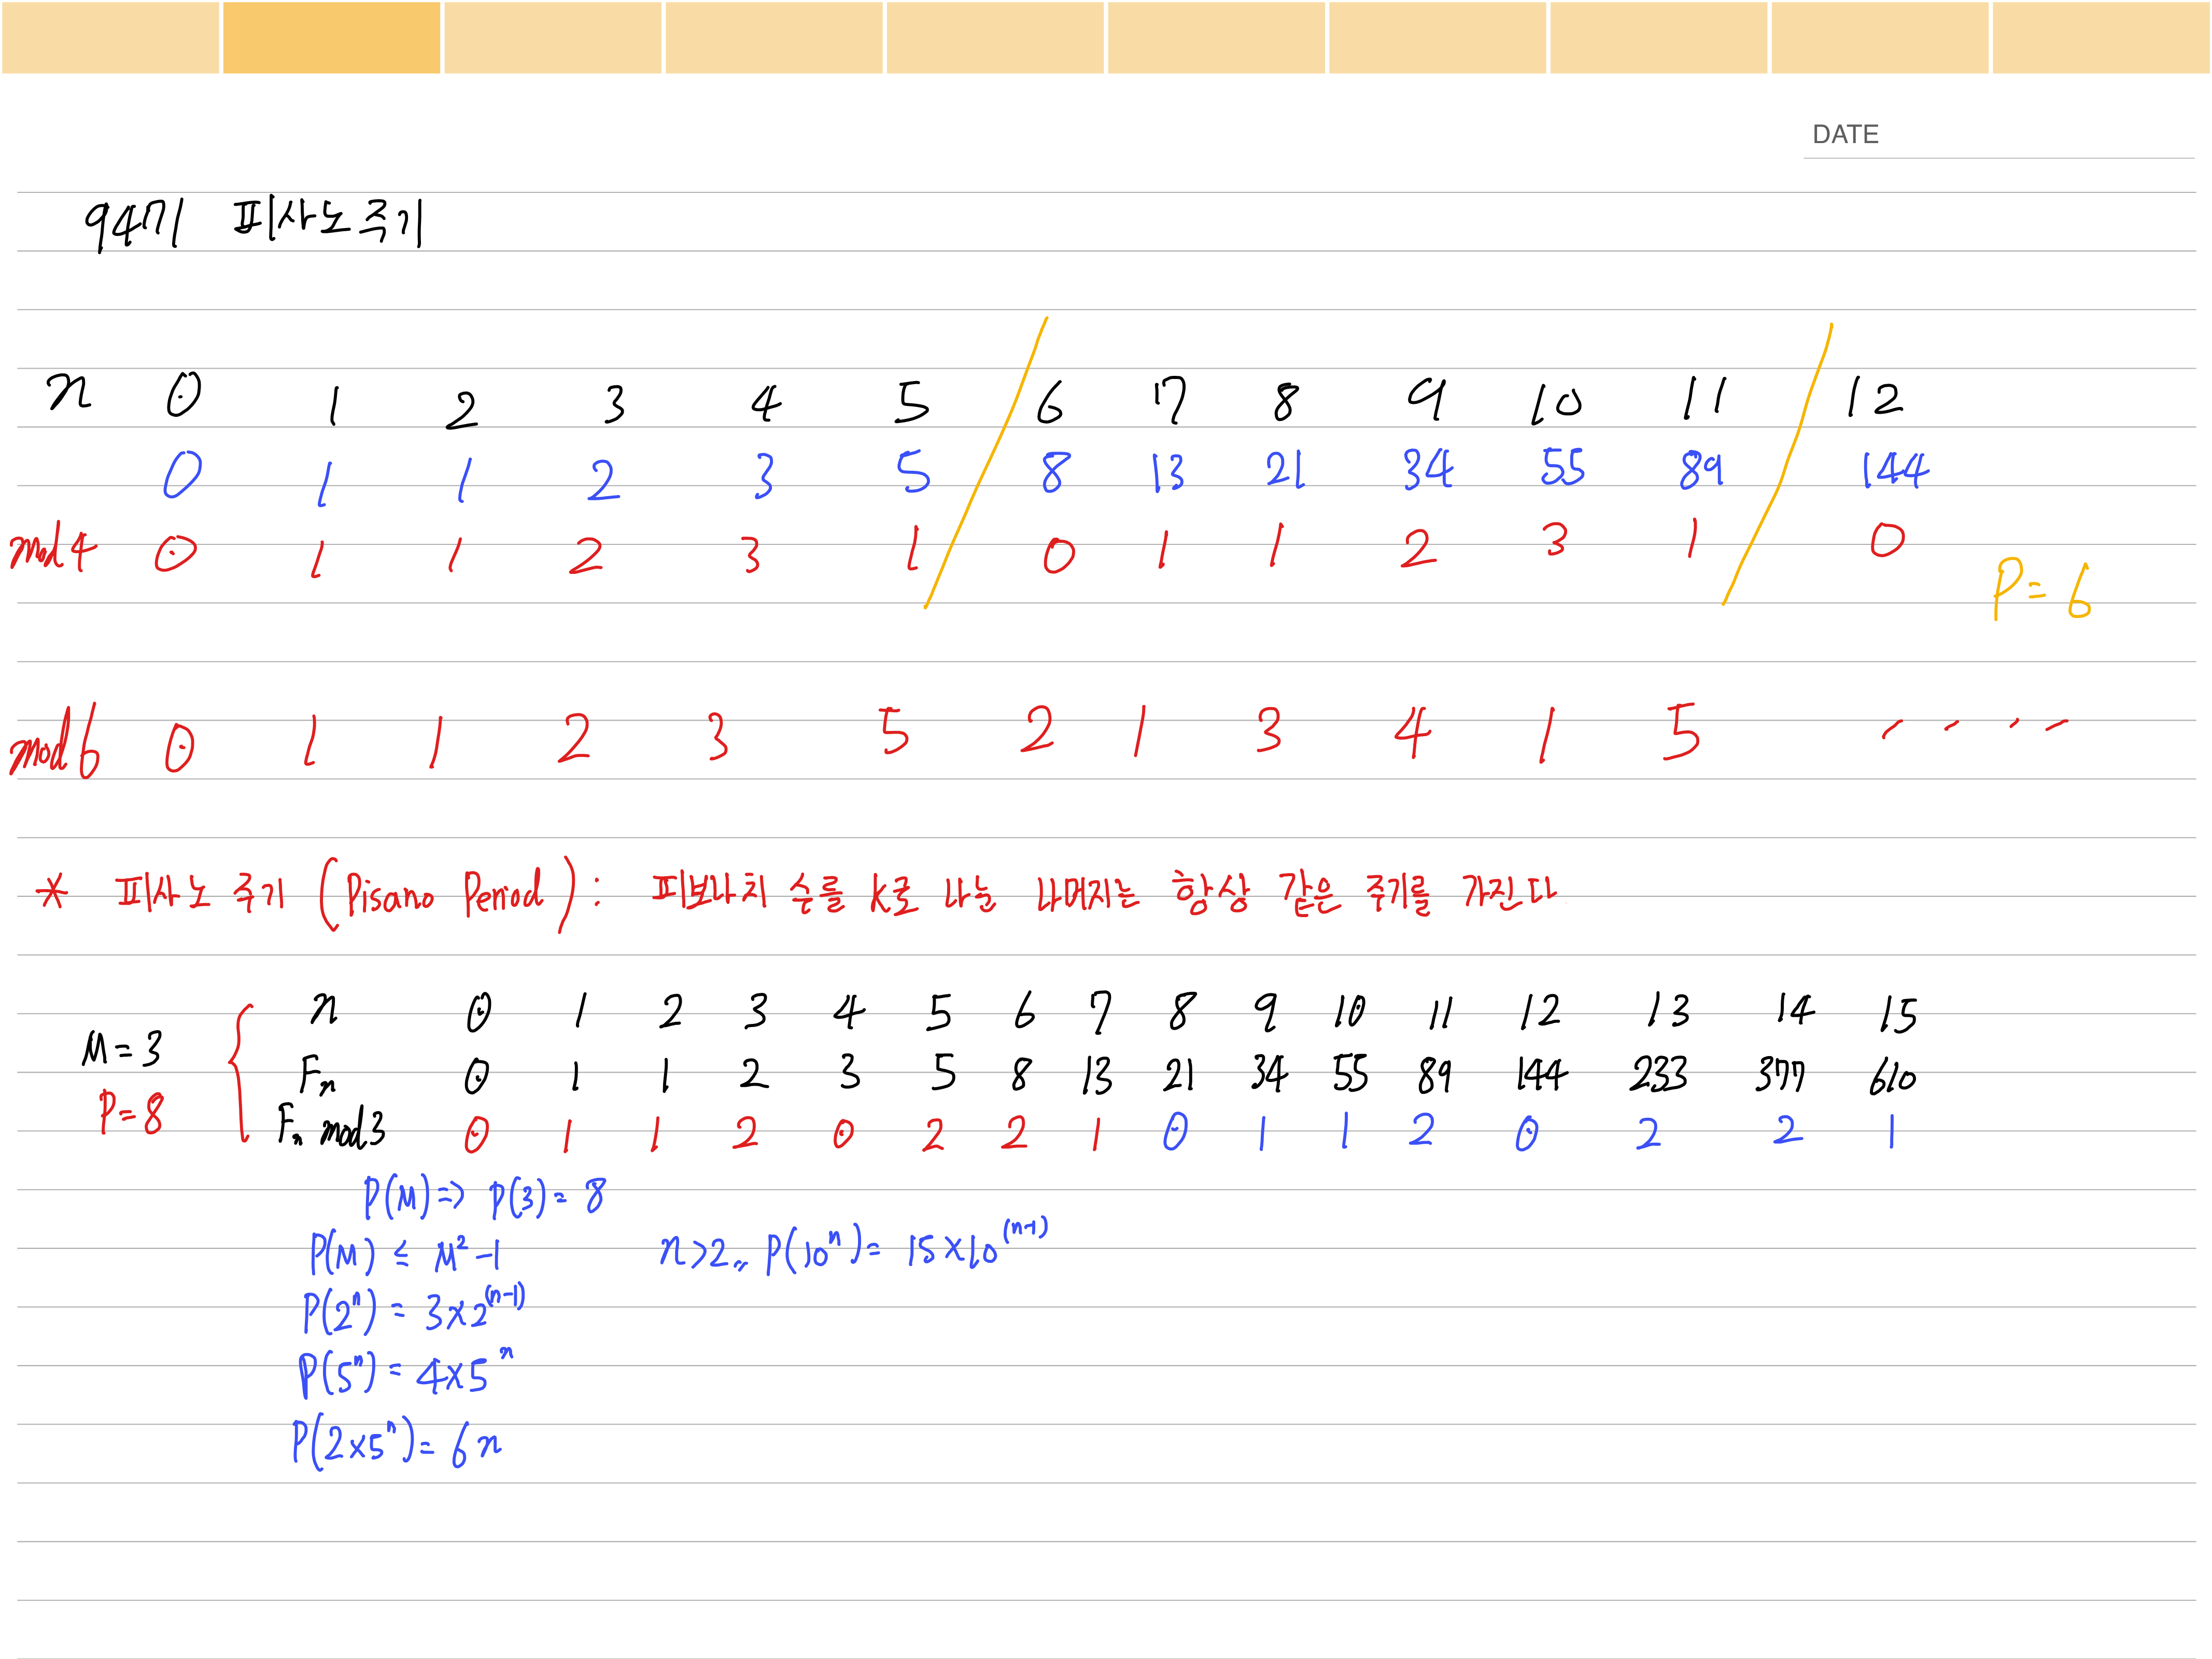 DATE
9471 피사노 주기
n 0 1 2 3 4 5 6 7 8 9 10 11 12
0 1 1 2 3 5 8 13 21 34 55 89 144
mod 4 0 1 1 2 3 1 0 1 1 2 3 1 0
P = 6
mod 6 0 1 1 2 3 5 2 1 3 4 1 5 - - - -
* 피사노 주기 (Pisano Period) : 피보나치 수를 K로 나눈 나머지는 항상 같은 주기를 가진다
n 0 1 2 3 4 5 6 7 8 9 10 11 12 13 14 15
M = 3
Fₙ 0 1 1 2 3 5 8 13 21 34 55 89 144 233 377 610
P = 8
Fₙ mod 3 0 1 1 2 0 2 2 1 0 1 1 2 0 2 2 1
P(M) => P(3) = 8
P(M) ≤ M² - 1 n > 2,, P(10ⁿ) = 15 × 10⁽ⁿ⁻¹⁾
P(2ⁿ) = 3 × 2⁽ⁿ⁻¹⁾
P(5ⁿ) = 4 × 5ⁿ
P(2 × 5ⁿ) = 6n